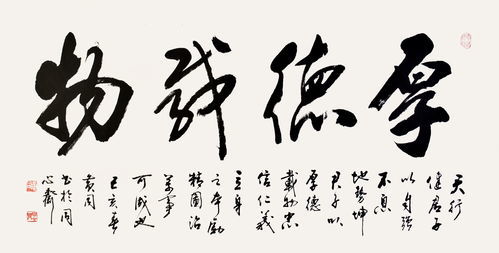 厚德載物
天行
健君子
以自強
不息
地勢坤
君子以
厚德
載物忠
信仁義
立身
之本勵
精圖治
萬事
可成也
己亥春
書於同
心齋